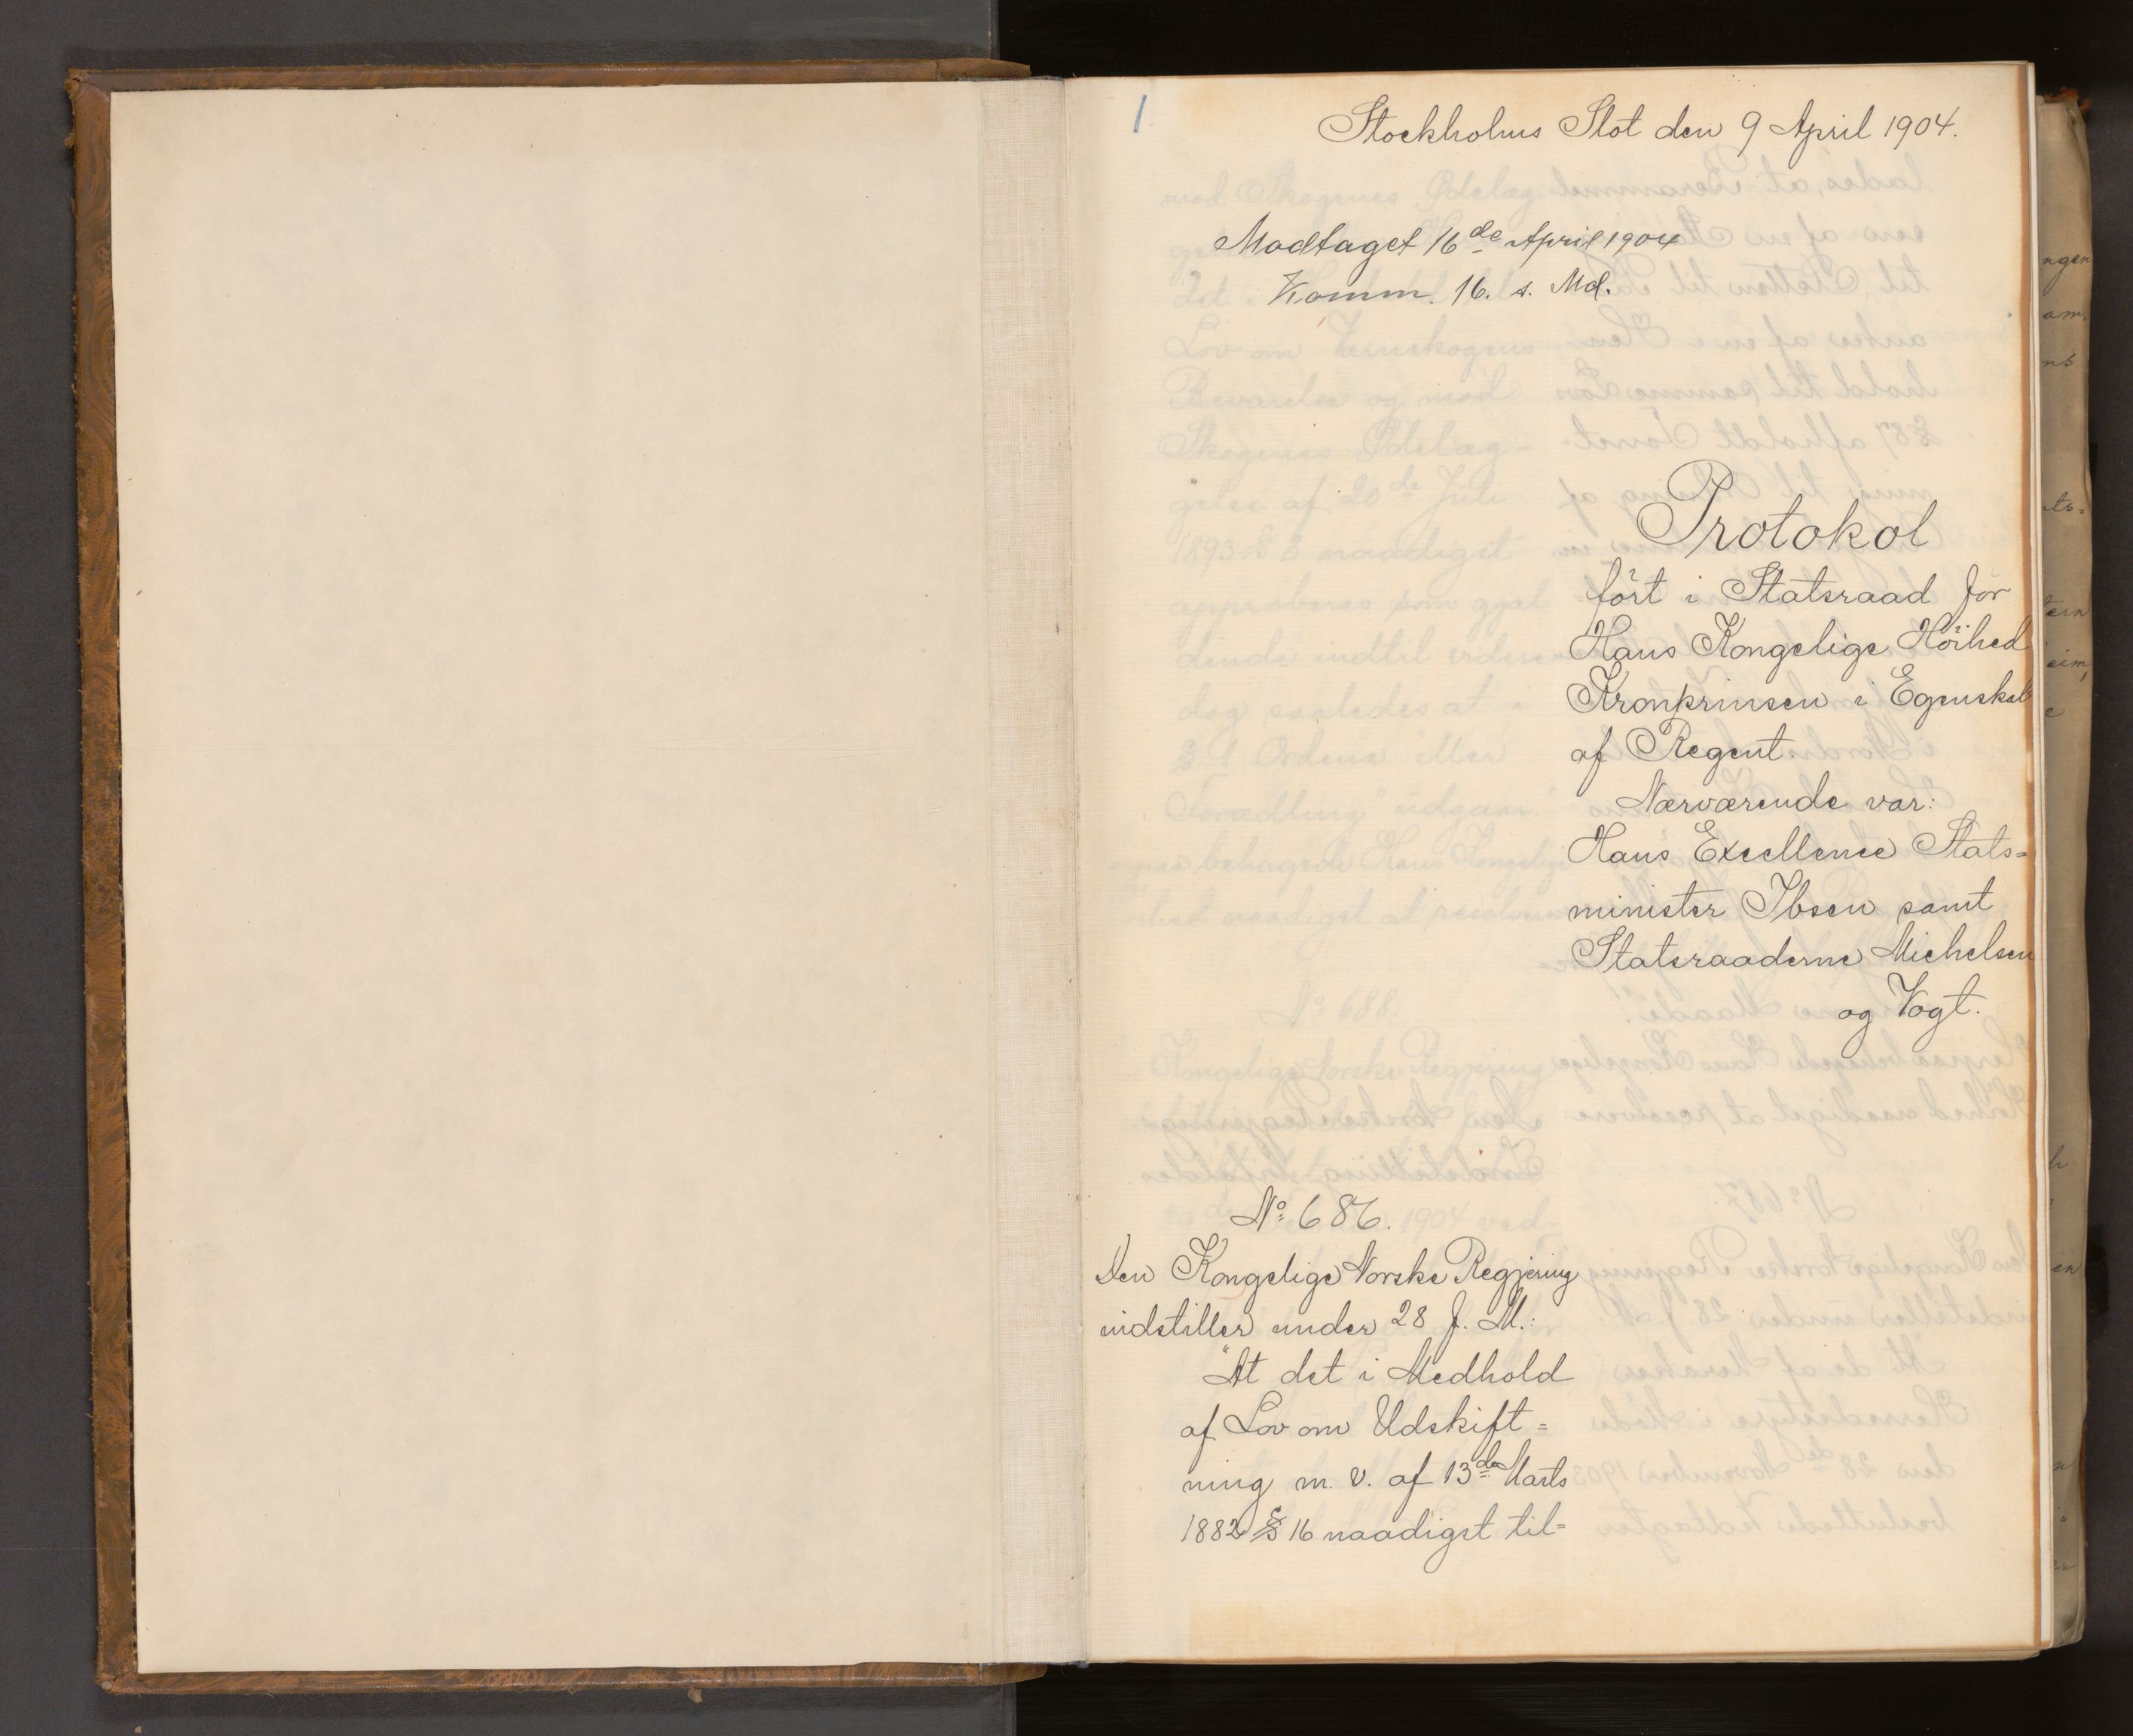 1
Stockholms Slot den 9 April 1904.
Modtaget 16de April 1904
Komm. 16. s. Md.
Protokol
ført i Statsraad for
Hans Kongelige Høihed
Kronprinsen i Egenskab
af Regent.
Nærværende var:
Hans Excellence Stats=
minister Ibsen samt
Statsraaderne Michelsen
og Vogt.
No 686.
Den Kongelige Norske Regjering
indstiller under 28 f. M.:
"At det i Medhold
af Lov om Udskift=
ning m. v. af 13de Marts
1882 § 16 naadigst til=